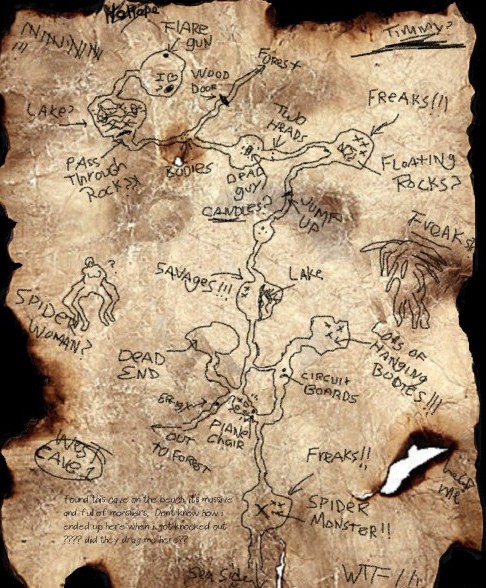 No Hope
FLARE
GUN
TIMMY?
WOOD
DOOR
FOREST
LAKE?
TWO
HEADS
FREAKS!!!
PASS
THROUGH
ROCKS?!
BODIES
DEAD
GUY!
FLOATING
ROCKS?
CANDLES?
JUMP
UP
FREAKS
SAVAGES!!!
LAKE
SPIDER
WOMAN?
?
LOTS OF
HANGING
BODIES!!!
DEAD
END
CIRCUIT
BOARDS
PIANO
CHAIR
OUT
TO FOREST
WEST
CAVE?
FREAKS!!
HELP
ME
found this cave on the beach, its massive
and full of monsters. Dont know how i
ended up here when i got knocked out
???? did they drag me here??
SPIDER
MONSTER!!
Sea Side
WTF